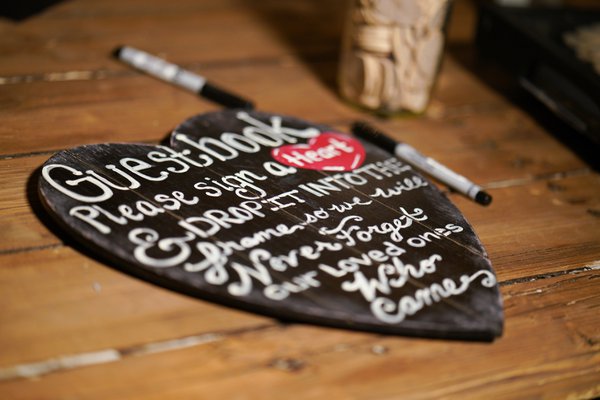 Guestbook
Please sign a Heart
& DROP IT INTO THE
frame so we will
Never Forget
our loved ones
Who
Came